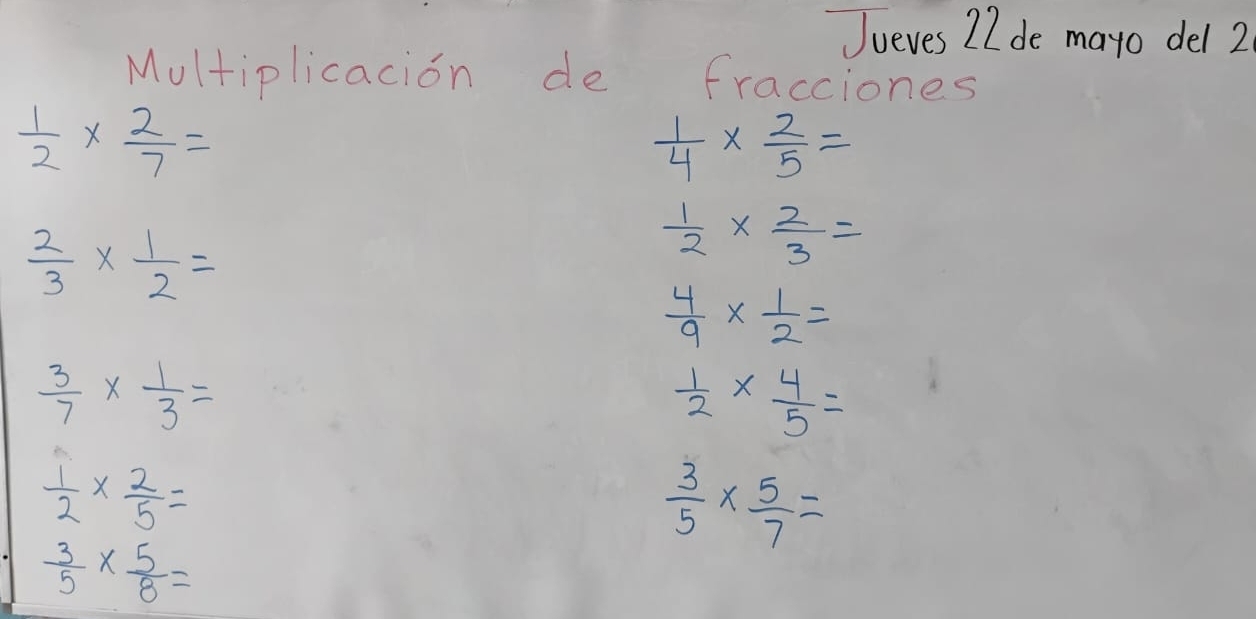 Jueves 22 de mayo del
Multiplicación de fracciones
1/2 x 2/7 =
2/3 x 1/2 =
3/7 x 1/3 =
1/2 x 2/5 =
3/5 x 5/8 =
1/4 x 2/5 =
1/2 x 2/3 =
4/9 x 1/2 =
1/2 x 4/5 =
3/5 x 5/7 =